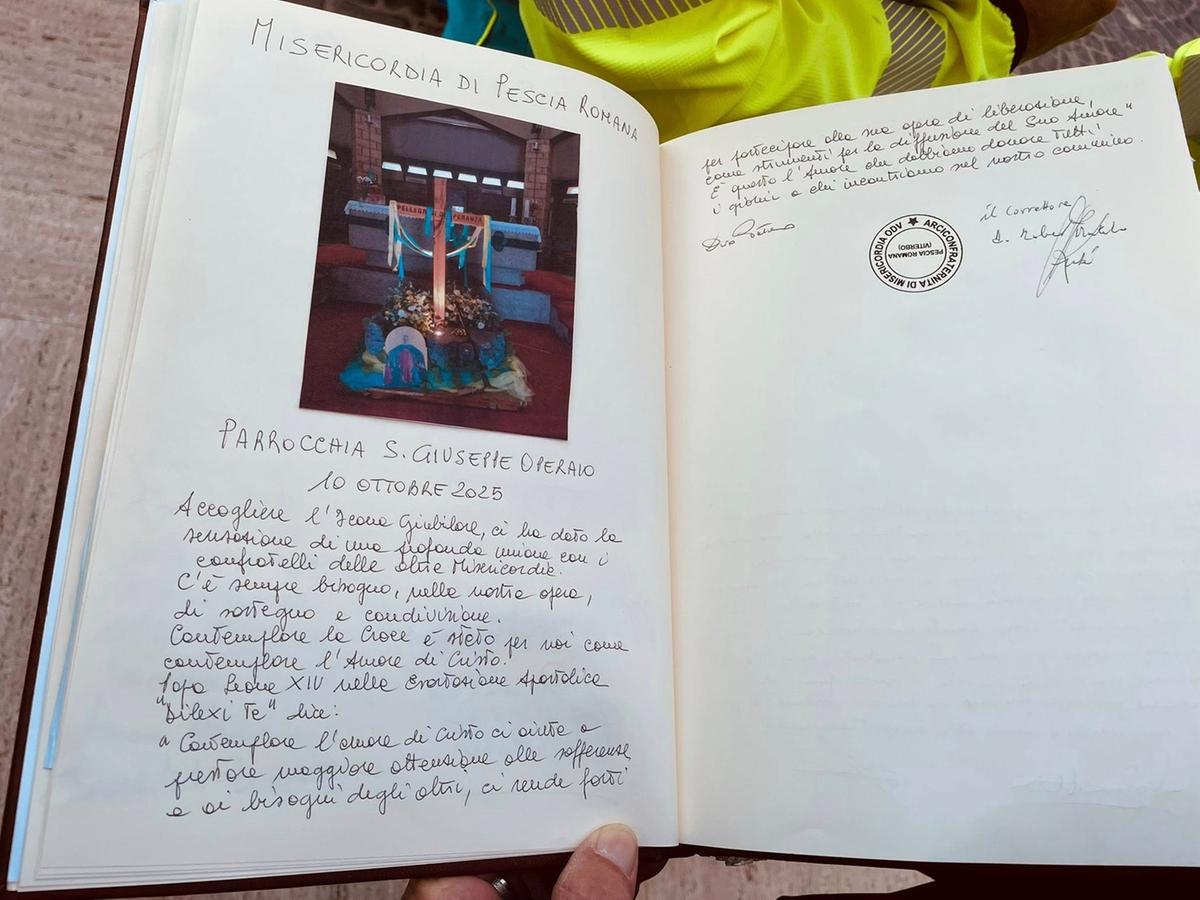 MISERICORDIA DI PESCIA ROMANA
PELLEGRINI DI SPERANZA
PARROCCHIA S. GIUSEPPE OPERAIO
10 OTTOBRE 2025
Accogliere l'Icona Giubilare, ci ha dato la
sensazione di una profonda unione con i
confratelli delle altre Misericordie.
C'è sempre bisogno, nella nostra opera,
di sostegno e condivisione.
Contemplare la Croce è stato per noi come
contemplare l'Amore di Cristo.
Papa Leone XIV nella Esortazione Apostolica
"Dilexi Te" dice:
"Contemplare l'amore di Cristo ci aiuta a
prestare maggiore attenzione alle sofferenze
e ai bisogni degli altri, ci rende forti
per partecipare alla sua opera di liberazione,
come strumenti per la diffusione del Suo Amore"
È questo l'Amore che dobbiamo donare tutti i
giorni a chi incontriamo nel nostro cammino.
il Correttore
ARCICONFRATERNITA DI MISERICORDIA ODV
PESCIA ROMANA
(VITERBO)